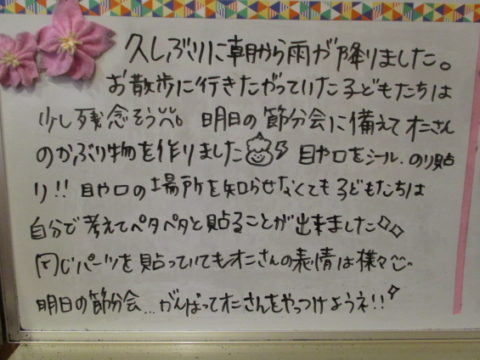 久しぶりに朝から雨が降りました。
お散歩に行きたがっていた子どもたちは
少し残念そう。明日の節分会に備えてオニさん
のかぶり物を作りました 目や口をシール、のり貼
り!!目や口の場所を知らせなくても子どもたちは
自分で考えてペタペタと貼ることが出来ました
同じパーツを貼っていてもオニさんの表情は様々
明日の節分会…がんばってオニさんをやっつけようネ!!